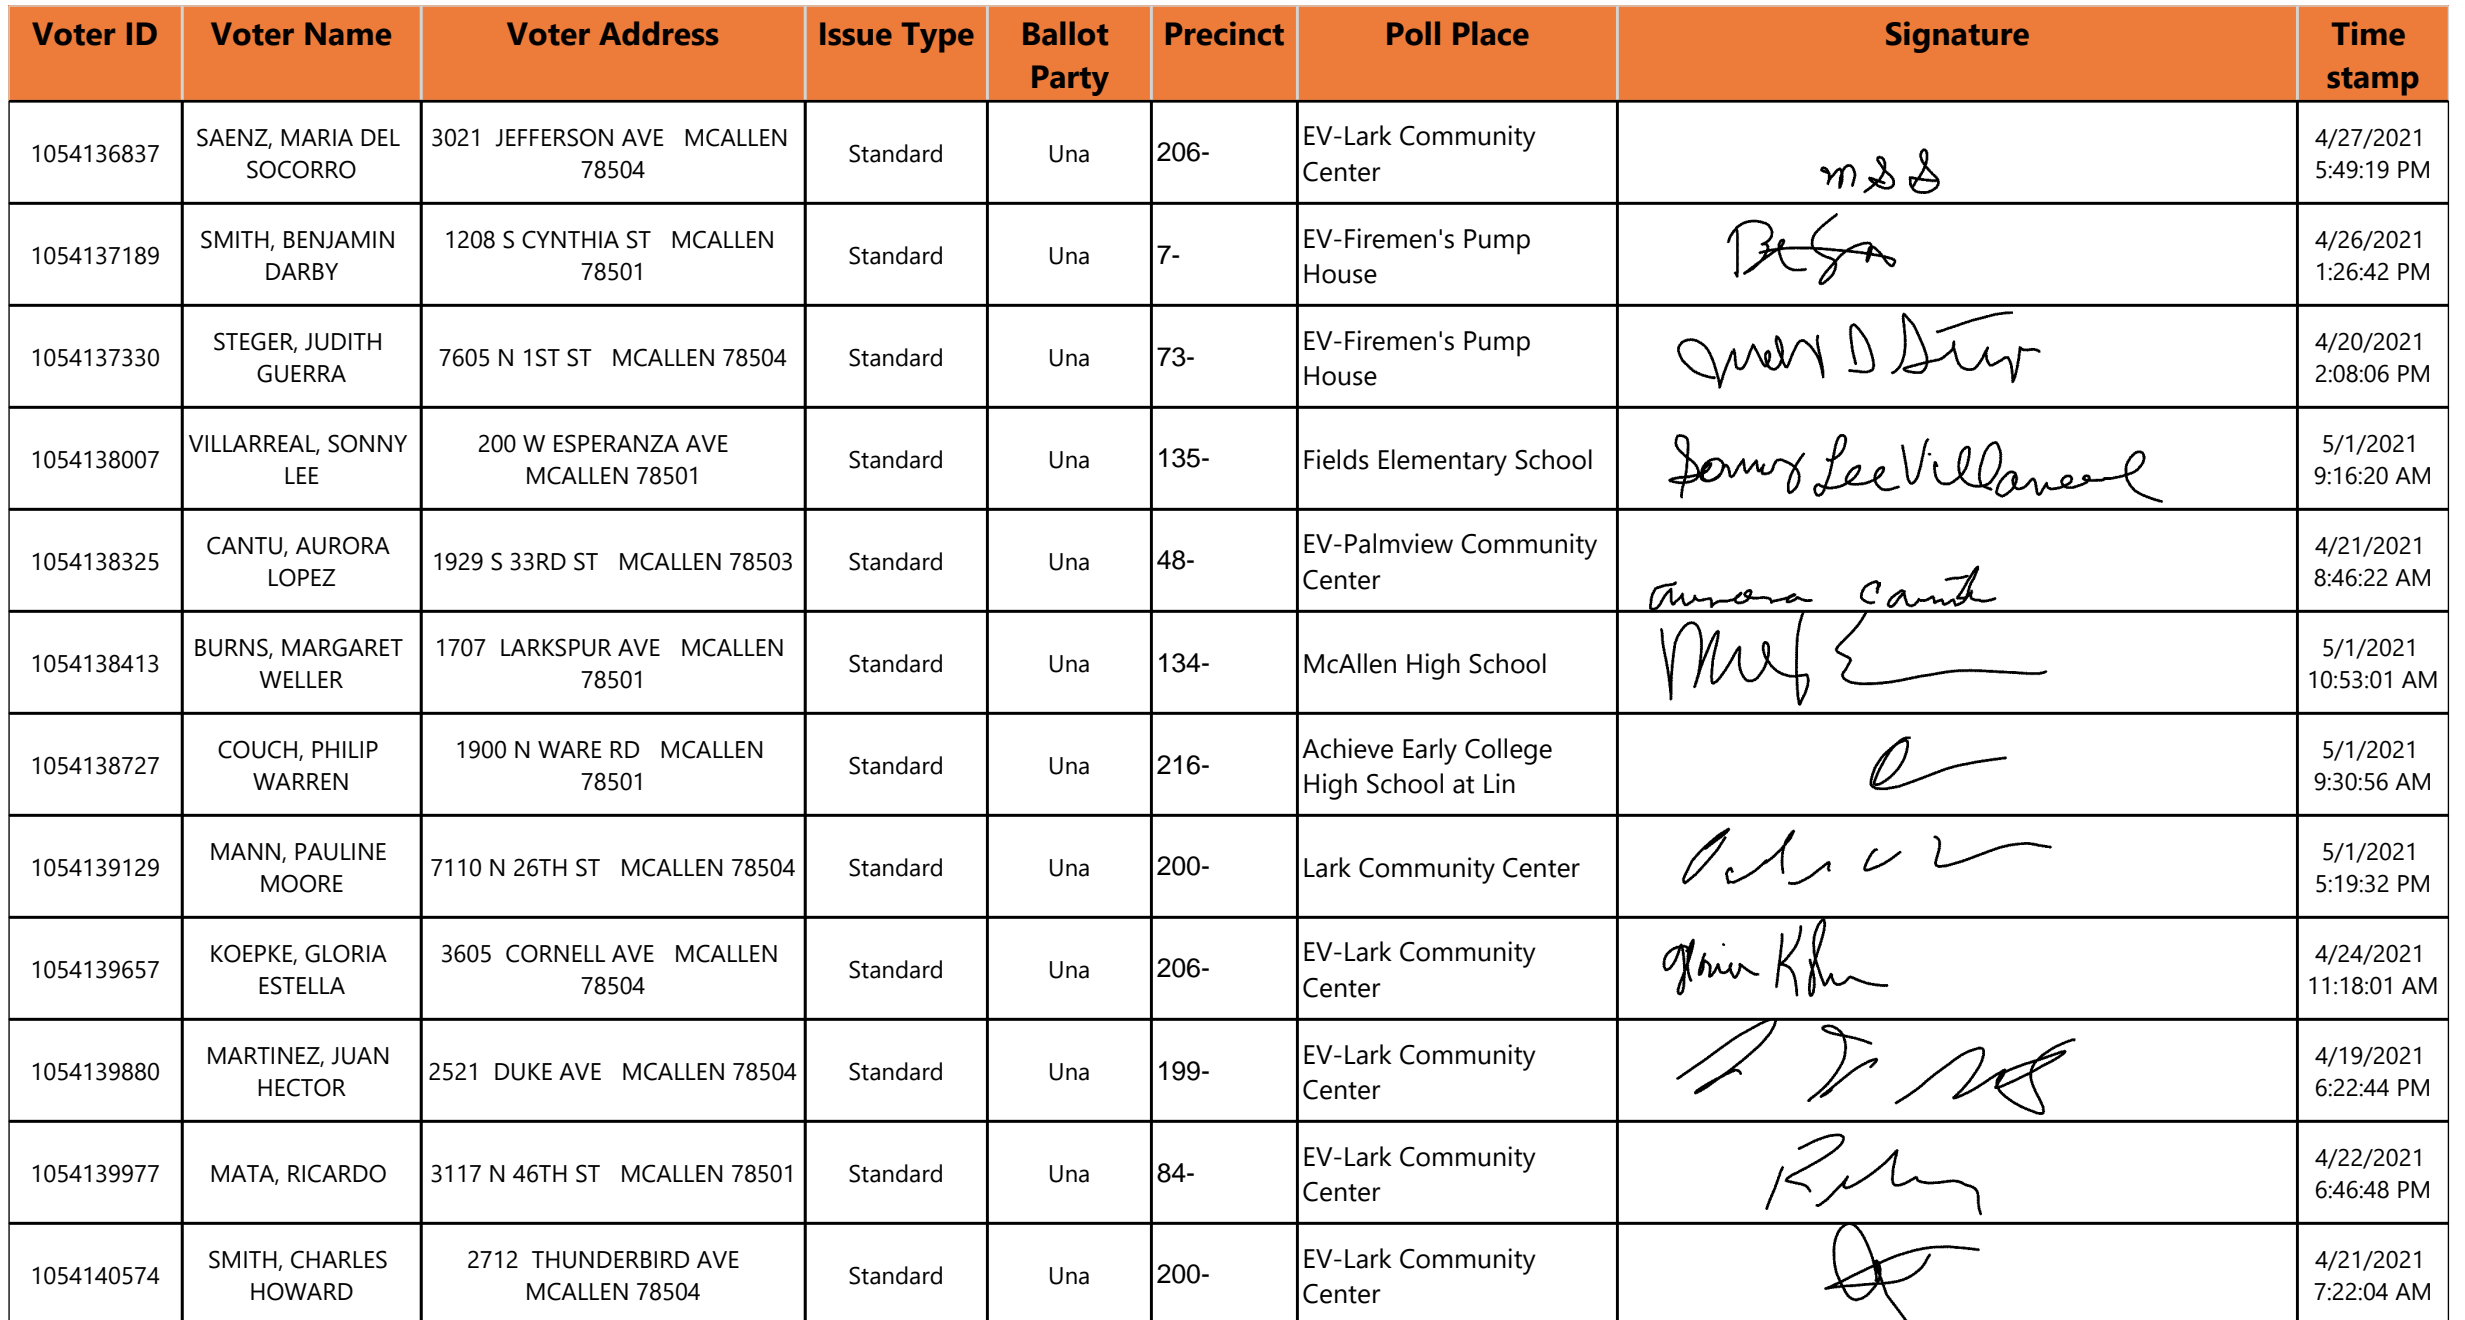 Voter ID Voter Name Voter Address Issue Type Ballot Party Precinct Poll Place Signature Time stamp
1054136837 SAENZ, MARIA DEL SOCORRO 3021 JEFFERSON AVE MCALLEN 78504 Standard Una 206- EV-Lark Community Center mss 4/27/2021 5:49:19 PM
1054137189 SMITH, BENJAMIN DARBY 1208 S CYNTHIA ST MCALLEN 78501 Standard Una 7- EV-Firemen's Pump House 4/26/2021 1:26:42 PM
1054137330 STEGER, JUDITH GUERRA 7605 N 1ST ST MCALLEN 78504 Standard Una 73- EV-Firemen's Pump House 4/20/2021 2:08:06 PM
1054138007 VILLARREAL, SONNY LEE 200 W ESPERANZA AVE MCALLEN 78501 Standard Una 135- Fields Elementary School Sonny Lee Villarreal 5/1/2021 9:16:20 AM
1054138325 CANTU, AURORA LOPEZ 1929 S 33RD ST MCALLEN 78503 Standard Una 48- EV-Palmview Community Center aurora Cantu 4/21/2021 8:46:22 AM
1054138413 BURNS, MARGARET WELLER 1707 LARKSPUR AVE MCALLEN 78501 Standard Una 134- McAllen High School 5/1/2021 10:53:01 AM
1054138727 COUCH, PHILIP WARREN 1900 N WARE RD MCALLEN 78501 Standard Una 216- Achieve Early College High School at Lin 5/1/2021 9:30:56 AM
1054139129 MANN, PAULINE MOORE 7110 N 26TH ST MCALLEN 78504 Standard Una 200- Lark Community Center 5/1/2021 5:19:32 PM
1054139657 KOEPKE, GLORIA ESTELLA 3605 CORNELL AVE MCALLEN 78504 Standard Una 206- EV-Lark Community Center 4/24/2021 11:18:01 AM
1054139880 MARTINEZ, JUAN HECTOR 2521 DUKE AVE MCALLEN 78504 Standard Una 199- EV-Lark Community Center 4/19/2021 6:22:44 PM
1054139977 MATA, RICARDO 3117 N 46TH ST MCALLEN 78501 Standard Una 84- EV-Lark Community Center 4/22/2021 6:46:48 PM
1054140574 SMITH, CHARLES HOWARD 2712 THUNDERBIRD AVE MCALLEN 78504 Standard Una 200- EV-Lark Community Center 4/21/2021 7:22:04 AM